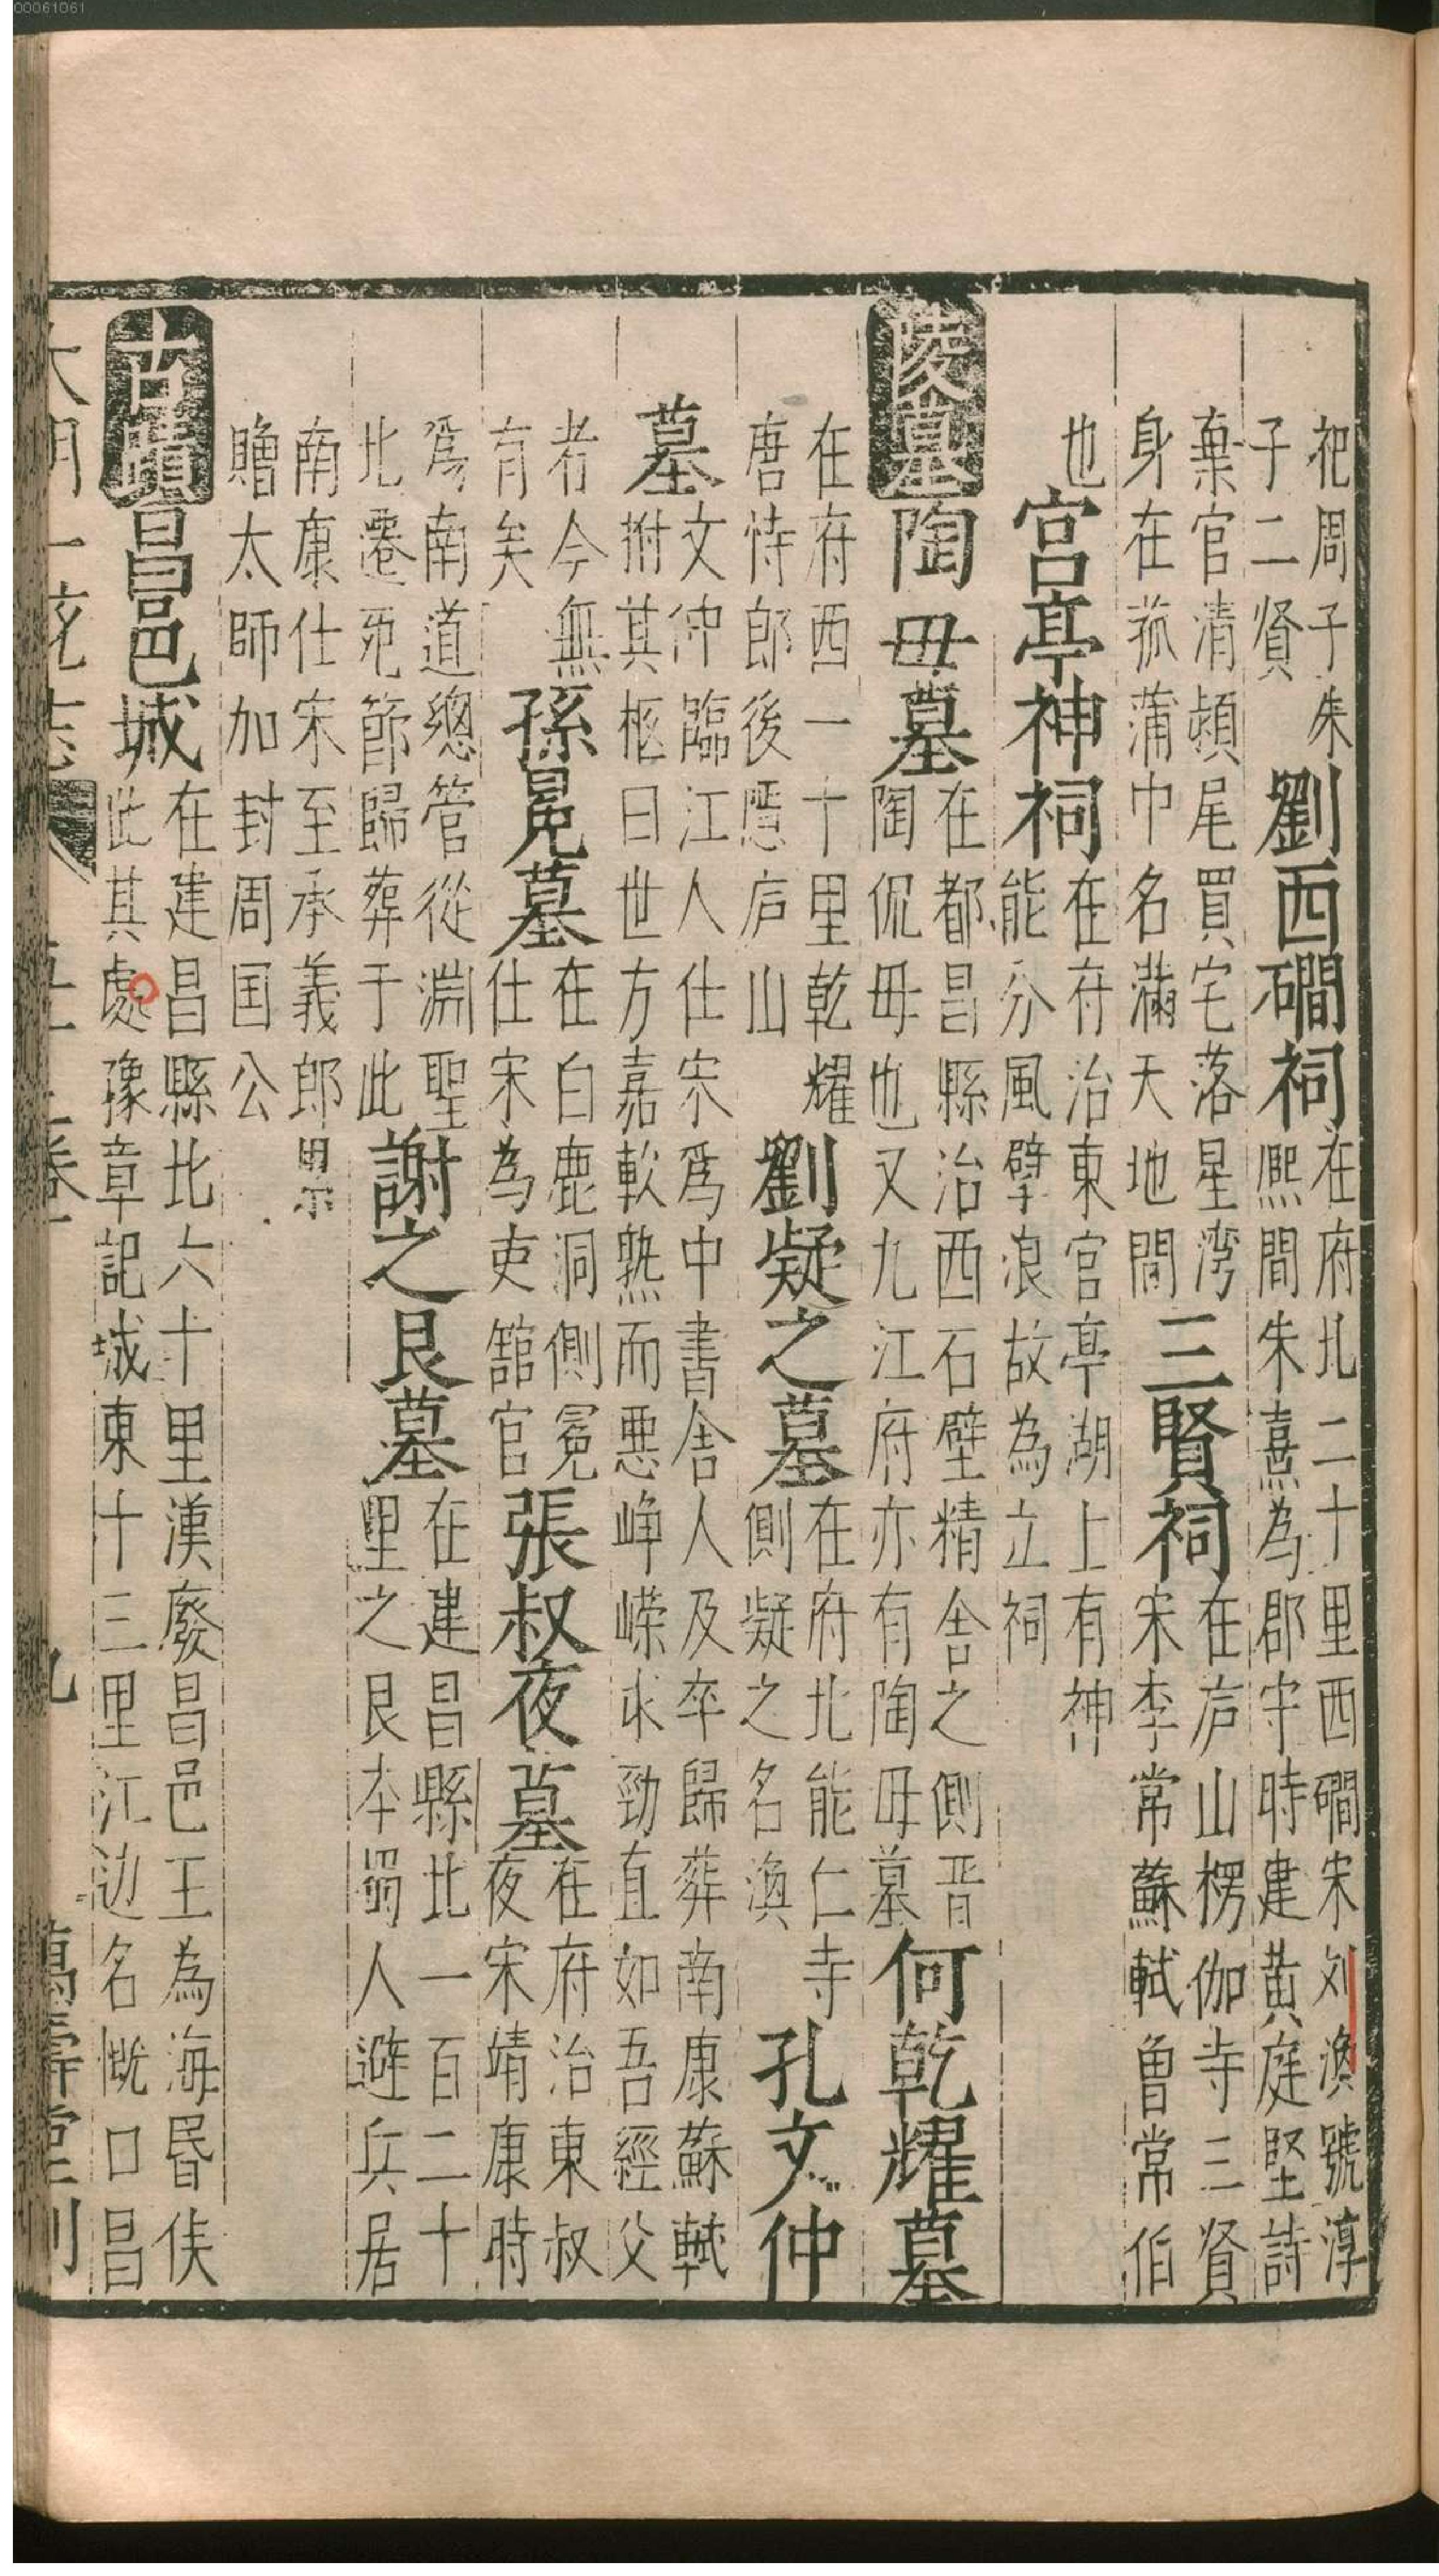 00061061
祀周子朱
子二賢
劉西磵祠
在府北二十里西磵宋刘渙號淳
熙間朱熹為郡守時建黄庭堅詩
棄官清頴尾買宅落星湾
身在菰蒲中名滿天地間
三賢祠
在庐山楞伽寺三賢
宋李常蘇軾曾常伯
也
宮亭神祠
在府治東宮亭湖上有神
能分風擘浪故為立祠
陵墓
陶母墓
在都昌縣治西石壁精舍之側晋
陶侃母也又九江府亦有陶母墓
何乾耀墓
在府西一十里乾耀
唐恃郎後隱庐山
劉凝之墓
在府北能仁寺
側凝之名渙
孔文仲
墓
文仲臨江人仕宋爲中書舍人及卒歸葬南康蘇軾
拊其柩曰世方嘉軟熟而惡崢嶸求勁直如吾經父
者今無
有矣
孫冕墓
在白鹿洞側冕
仕宋為吏舘官
張叔夜墓
在府治東叔
夜宋靖康時
爲南道總管從淵聖
北遷死節歸葬于此
謝之艮墓
在建昌縣北一百二十
里之艮本蜀人避兵居
南康仕宋至承義郎累
贈太師加封周国公
古蹟
昌邑城
在建昌縣北六十里漢廢昌邑王為海昬侯
此其處豫章記城東十三里江边名慨口昌
大明一统志
萬壽堂刊